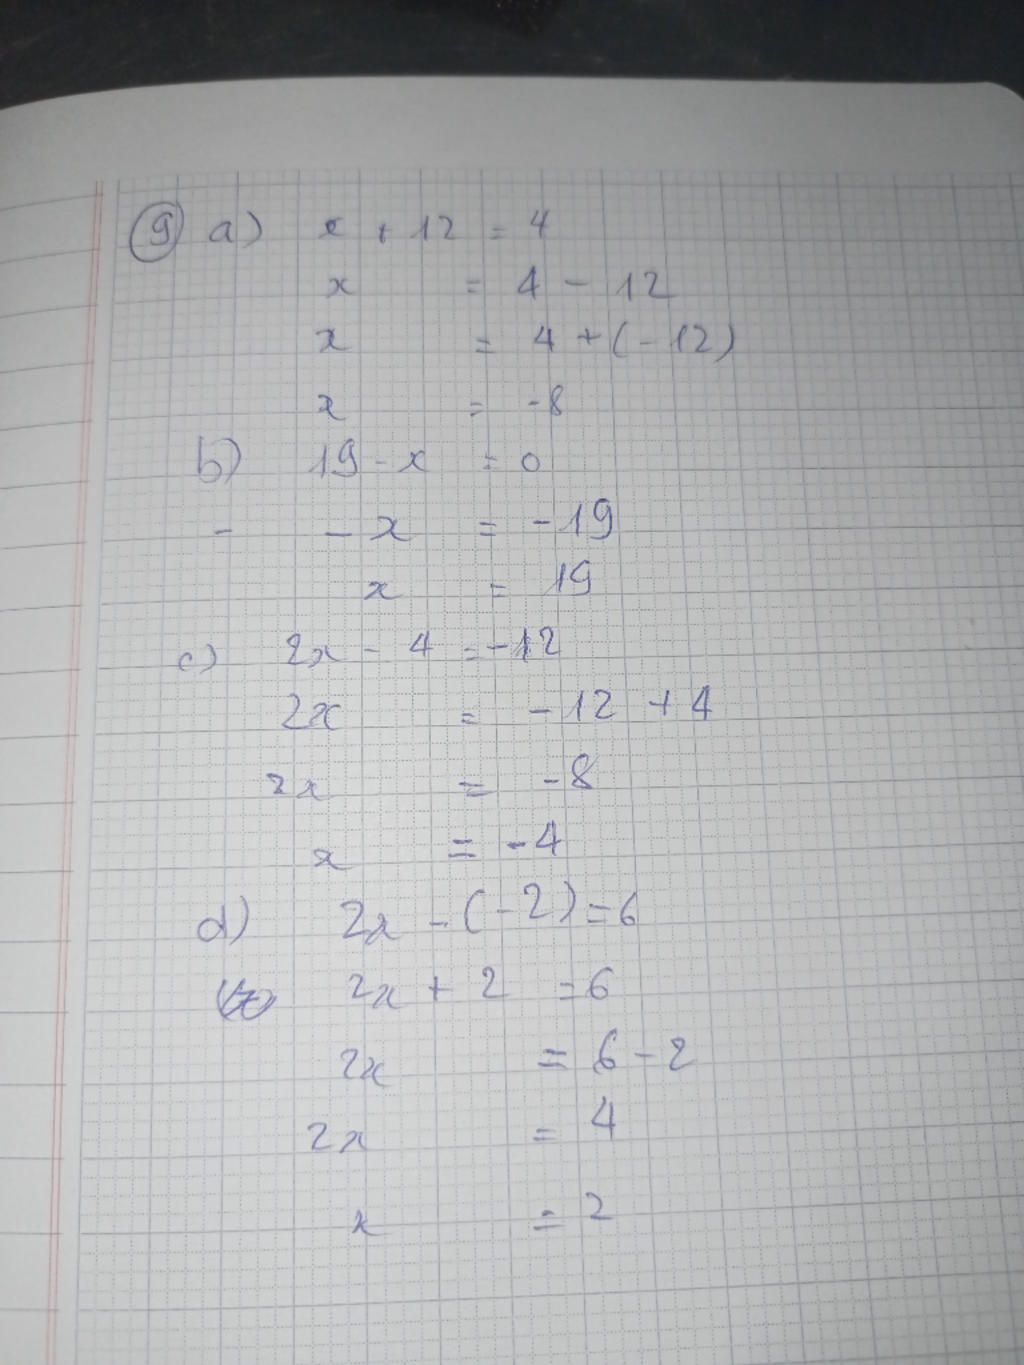 9 a) x + 12 = 4
x = 4 - 12
x = 4 + (-12)
x = -8
b) 19 - x = 0
- - x = -19
x = 19
c) 2x - 4 = -12
2x = -12 + 4
2x = -8
x = -4
d) 2x - (-2) = 6
2x + 2 = 6
2x = 6 - 2
2x = 4
x = 2